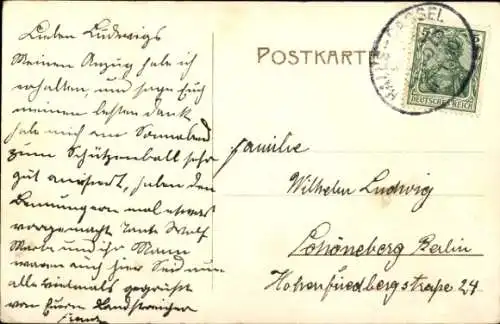 Lieben Ludwigs
Meinen Anzug hab ich
erhalten, und sage Euch
meinen besten Dank
habe mich am Sonnabend
zum Schützenball sehr
gut amüsiert, haben den
mal etwas
vorgemacht Tante Wolf
und ihr Mann
waren auch hier Seid nun
alle vielmals gegrüßt
von Eurem Landstreicher
POSTKARTE
CASSEL
5
DEUTSCHES REICH
Familie
Wilhelm Ludwig
Schöneberg Berlin
Hohenfriedbergstraße 24